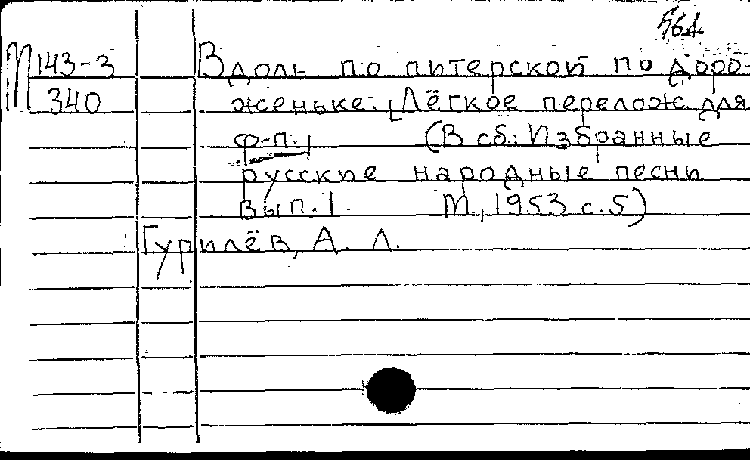 564
М 143-3 Вдоль по питерской по доро-
340 женьке. [Лёгкое перелож. для
ф-п.] (В сб.: Избранные
русские народные песни
Вып. 1. М., 1953 с. 5)
Гурилёв, А. Л.